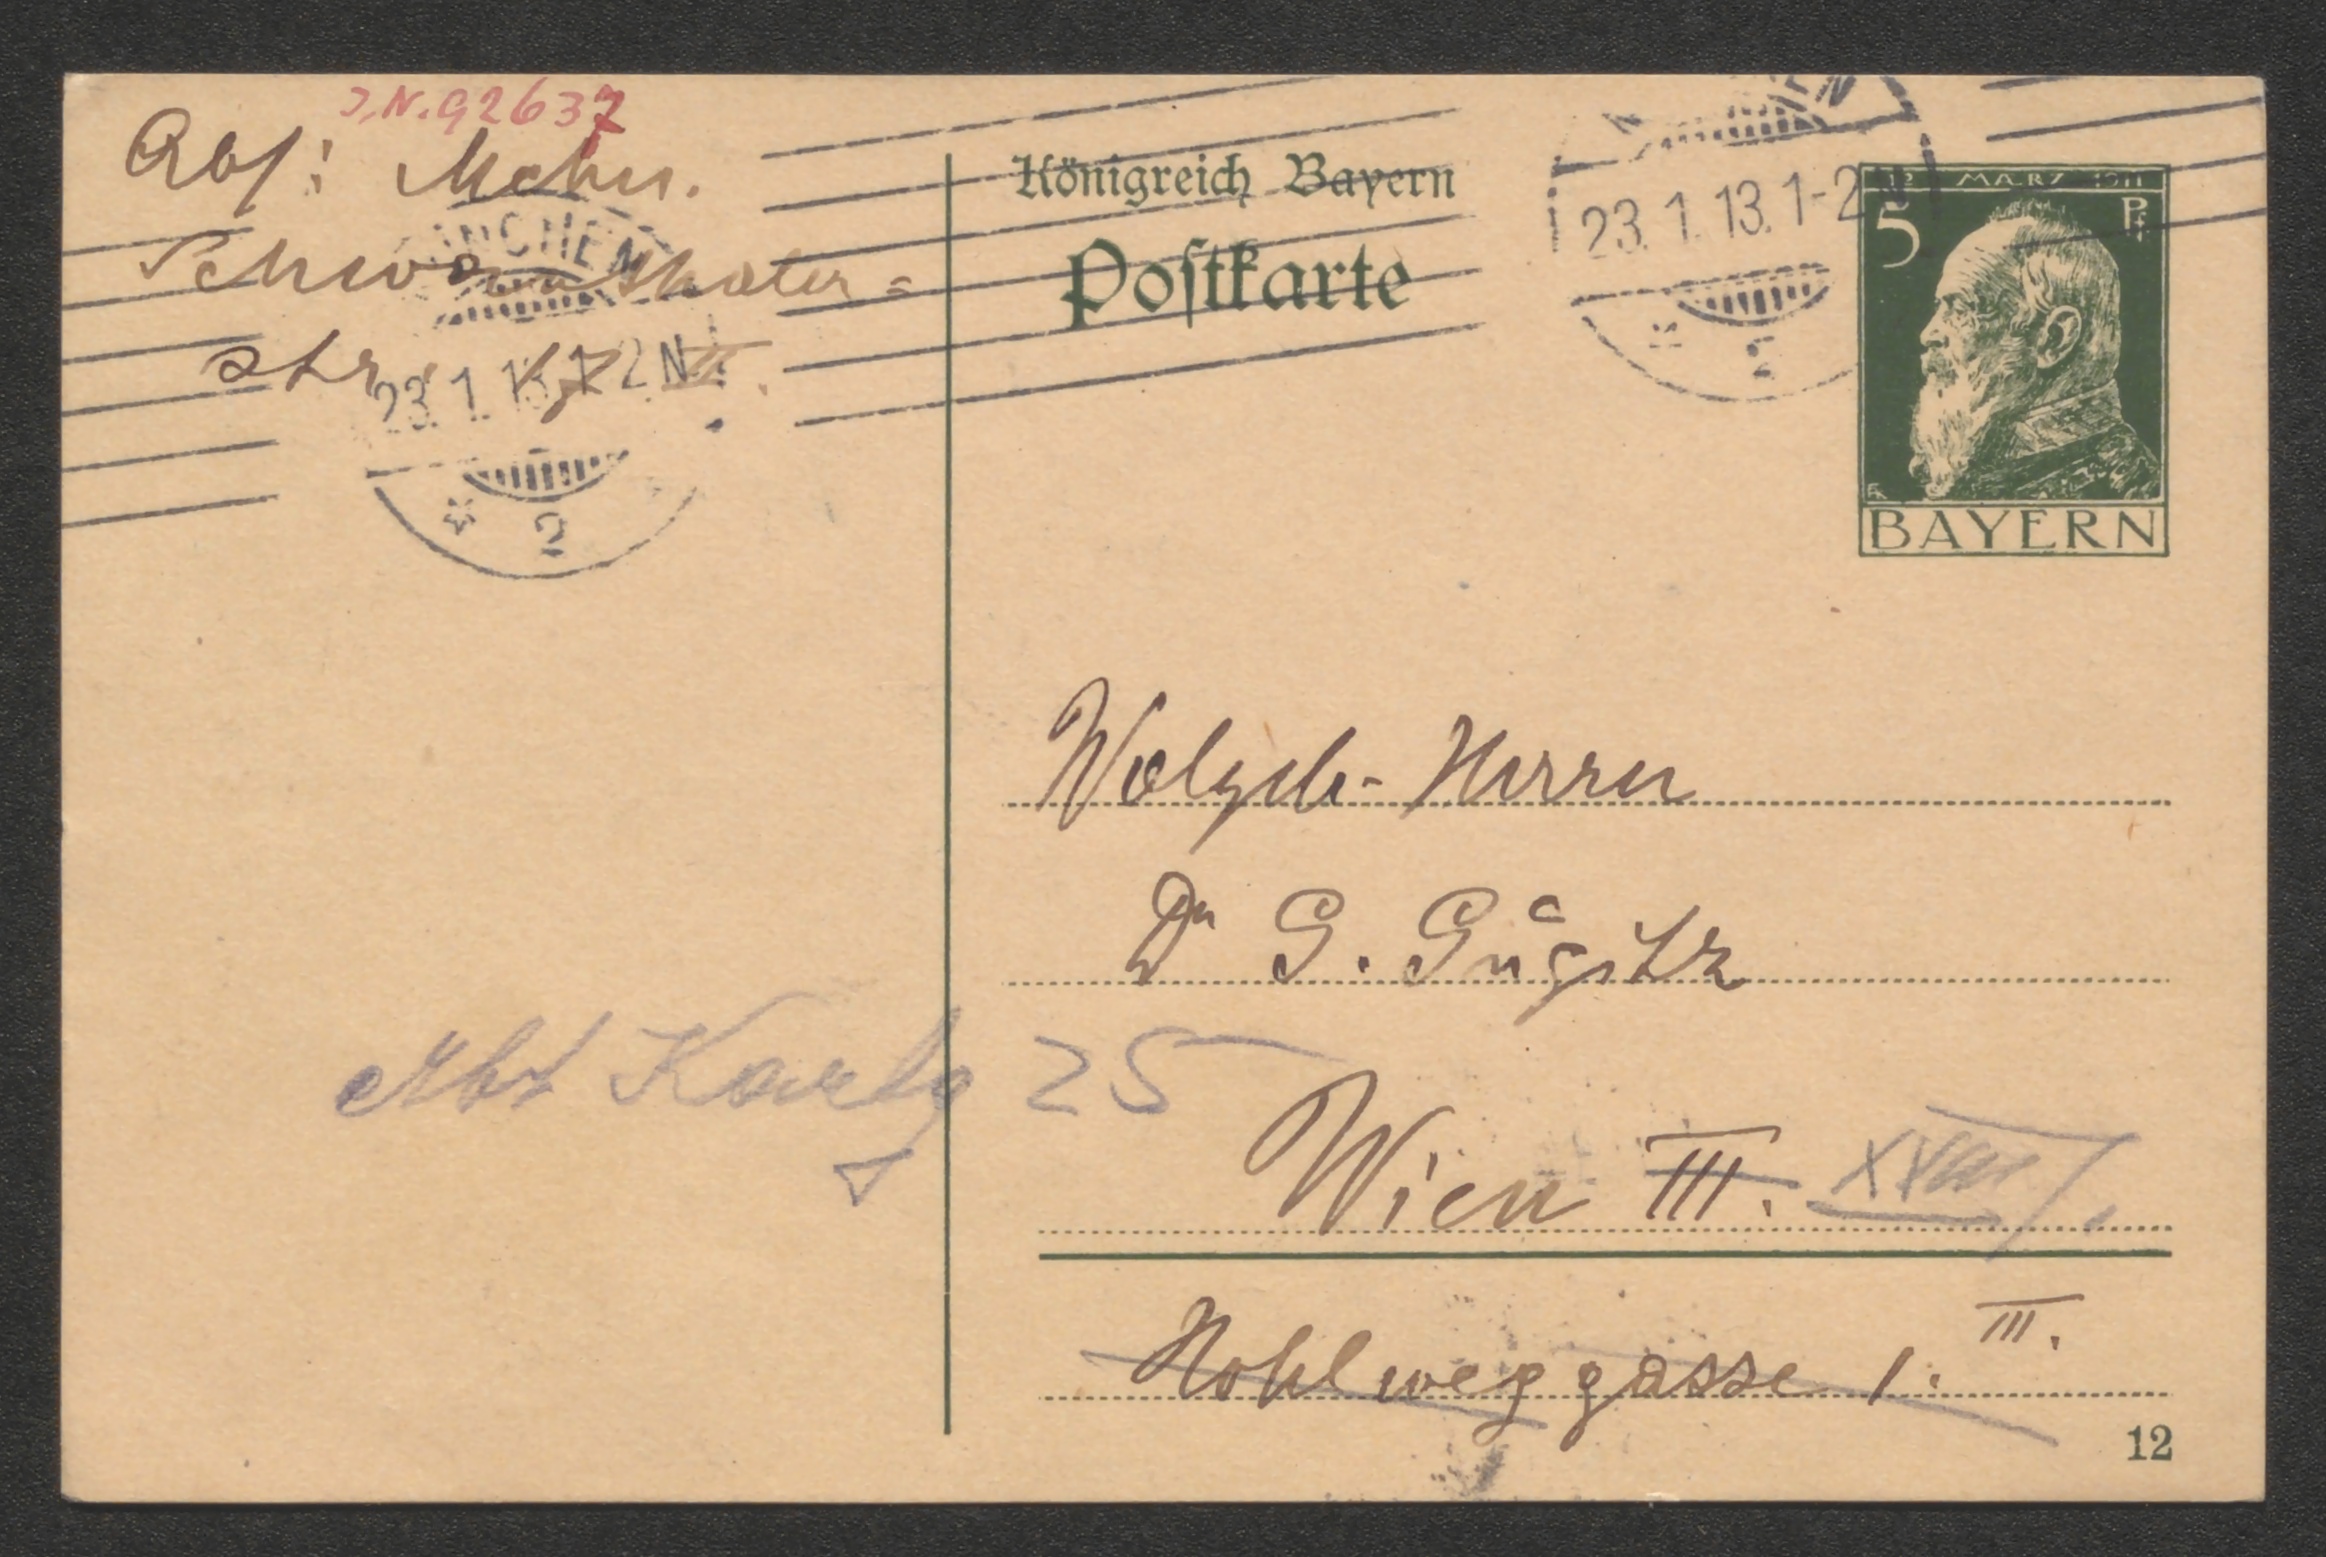 J.N. 92637
Abs:
Schwanthaler=
str.
MÜNCHEN
23. 1. 13. 1-2 N
2
Königreich Bayern
Postkarte
23. 1. 13. 1-2 N
2
12 MÄRZ 1911
5 Pf
BAYERN
Wolgeb. Herrn
Dr G. Gugitz
25
Wien III. XVIII/1.
Hohlweggasse 1. III.
12